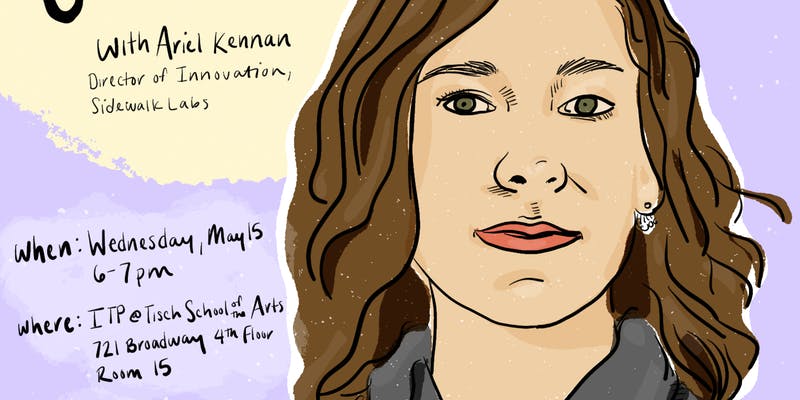 With Ariel Kennan
Director of Innovation,
Sidewalk Labs
when: Wednesday, May 15
6-7pm
where: ITP @ Tisch School of the Arts
721 Broadway 4th Floor
Room 15